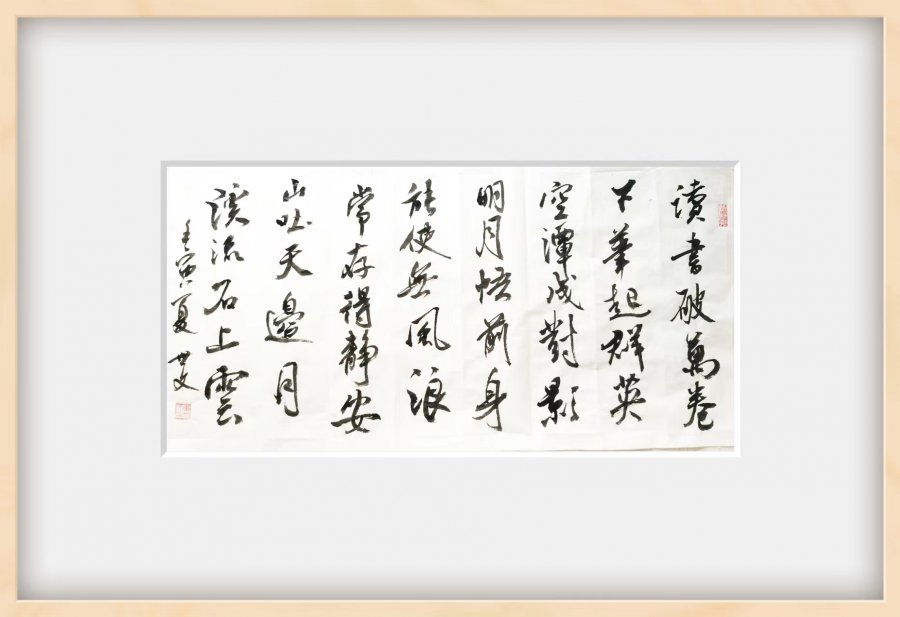 讀書破萬卷
下筆起群英
空潭成對影
明月悟前身
能使無風浪
常存得靜安
山吐天邊月
溪流石上雲
壬寅夏 世文